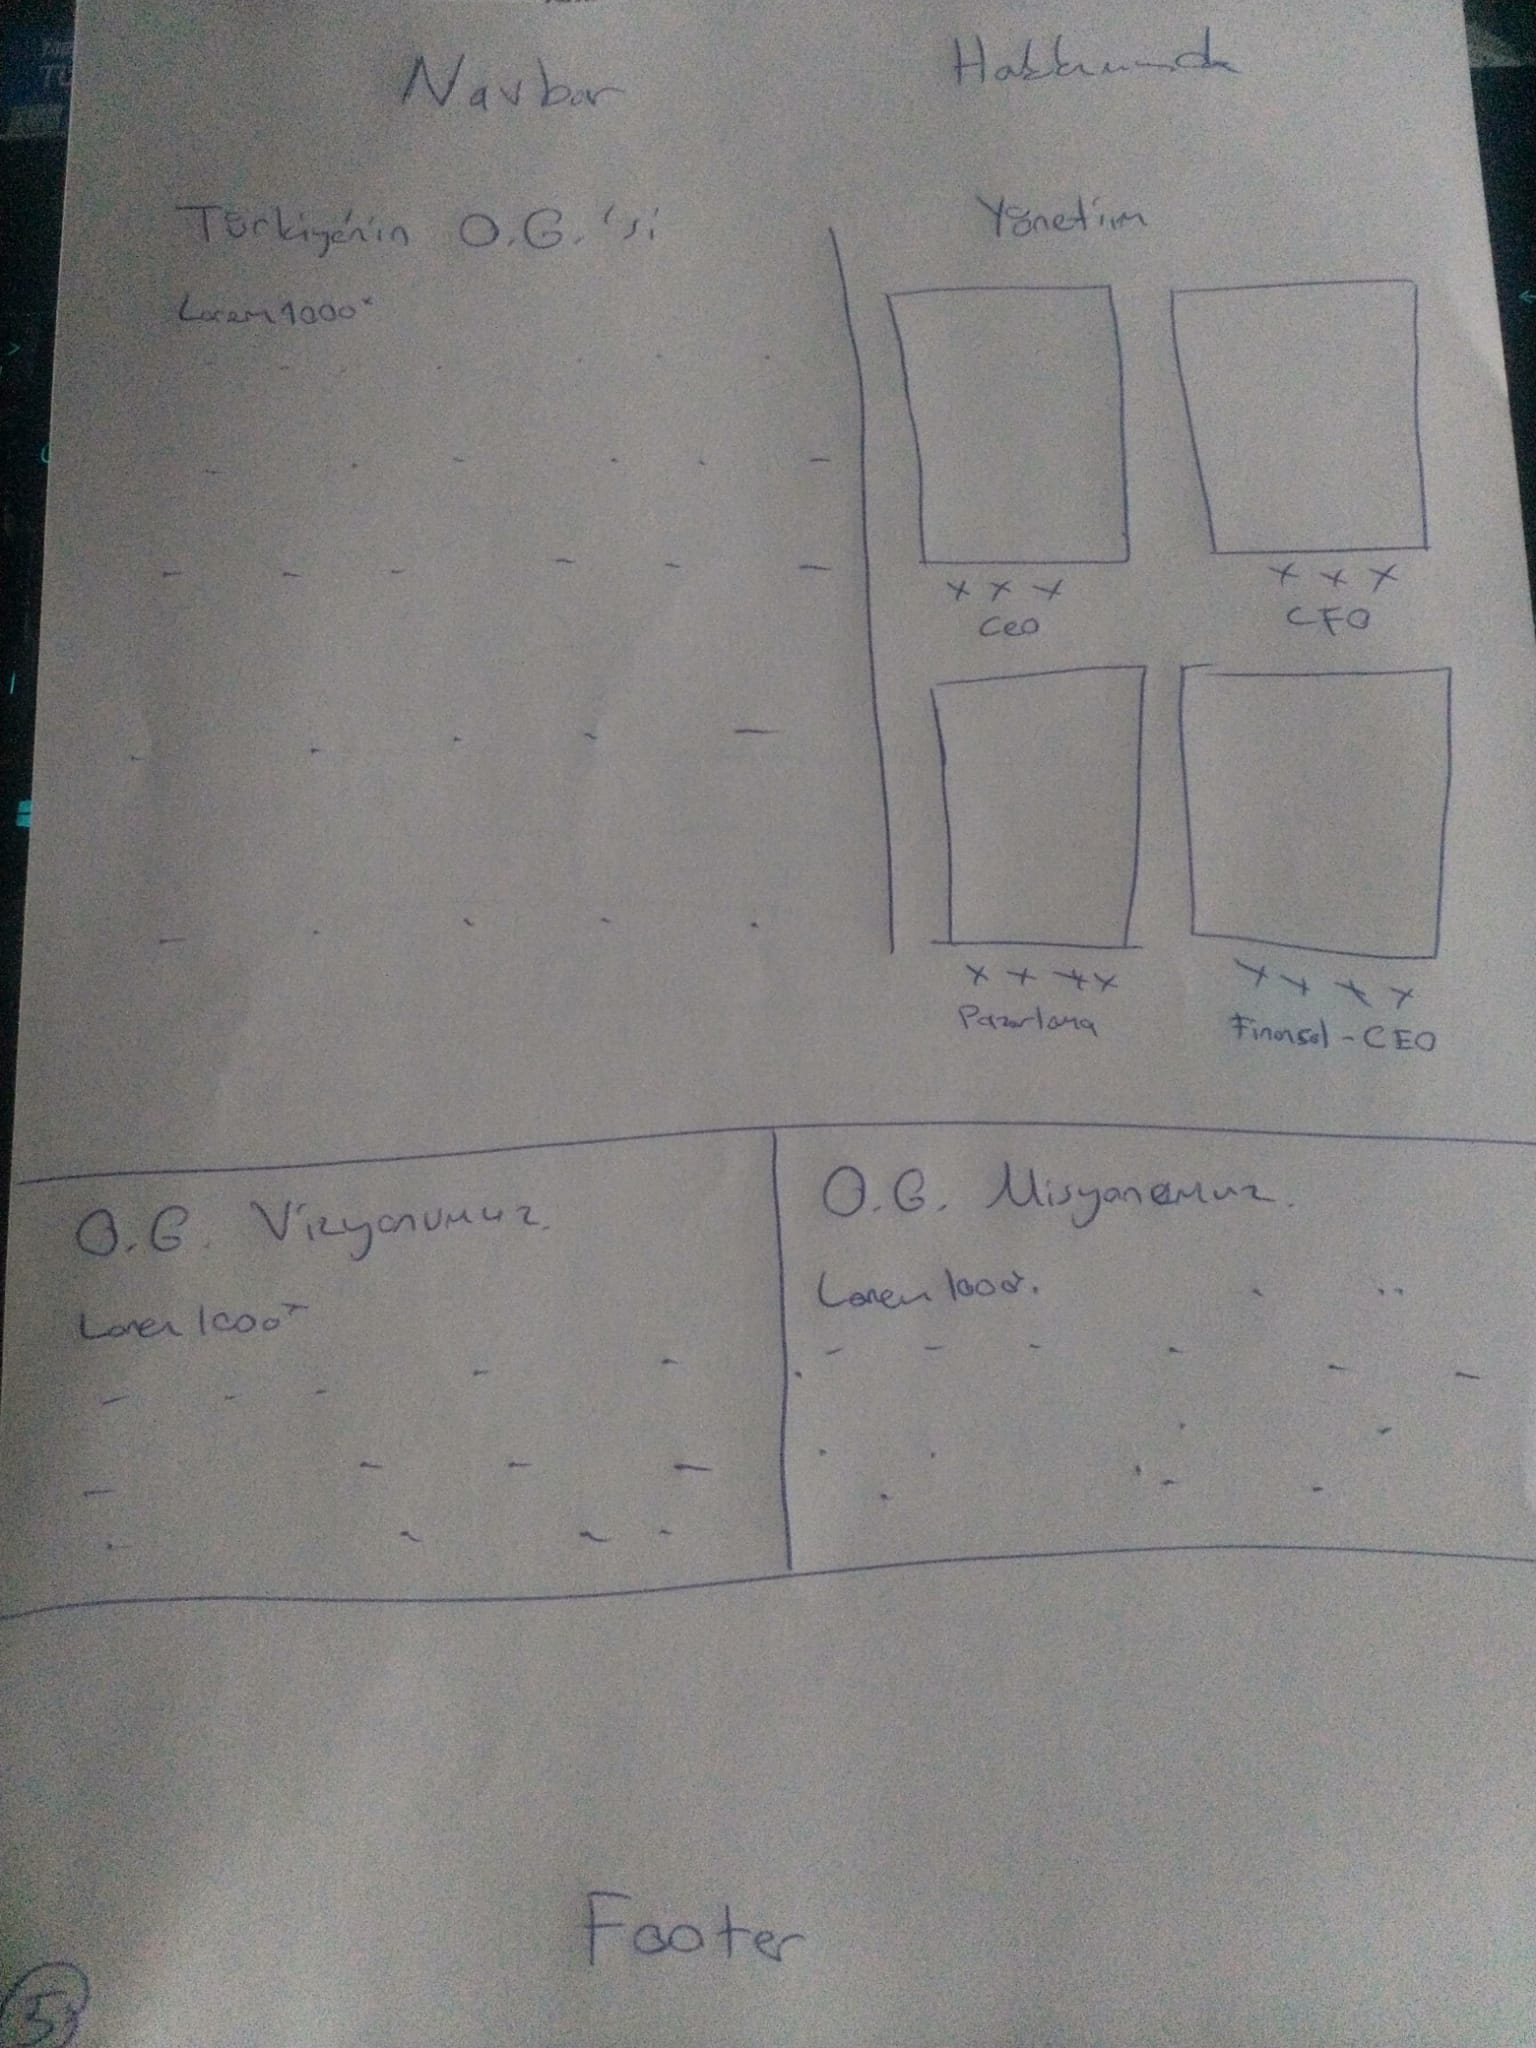 Navbar
Hakkımızda
Türkiye'nin O.G.'si
Lorem1000*
Yönetim
x x x
Ceo
x x x
CFO
x x x x
Pazarlama
x x x x
Finansal - CEO
O.G. Vizyonumuz.
Lorem 1000*
O.G. Misyonumuz.
Lorem 1000*.
Footer
5